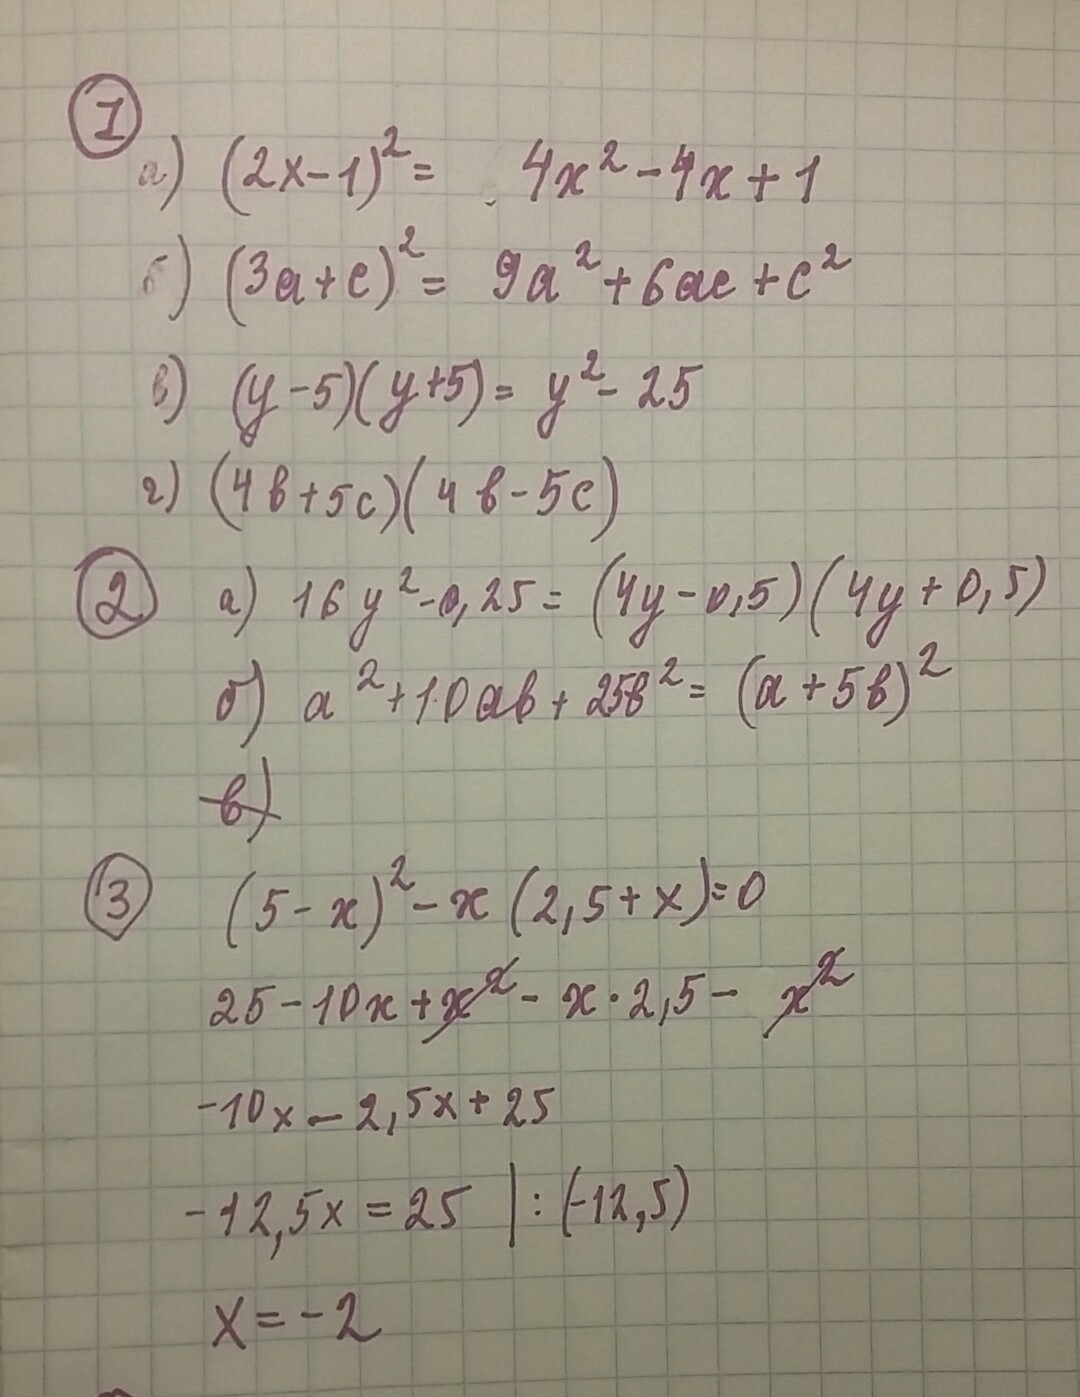 1
а) (2x-1)²= 4x²-4x+1
б) (3a+c)²= 9a²+6ac+c²
в) (y-5)(y+5)= y²-25
г) (4b+5c)(4b-5c)
2 а) 16y²-0,25= (4y-0,5)(4y+0,5)
б) a²+10ab+25b²= (a+5b)²
в)
3 (5-x)²-x(2,5+x)=0
25-10x+x²-x·2,5-x²
-10x-2,5x+25
-12,5x=25 |:(-12,5)
x=-2